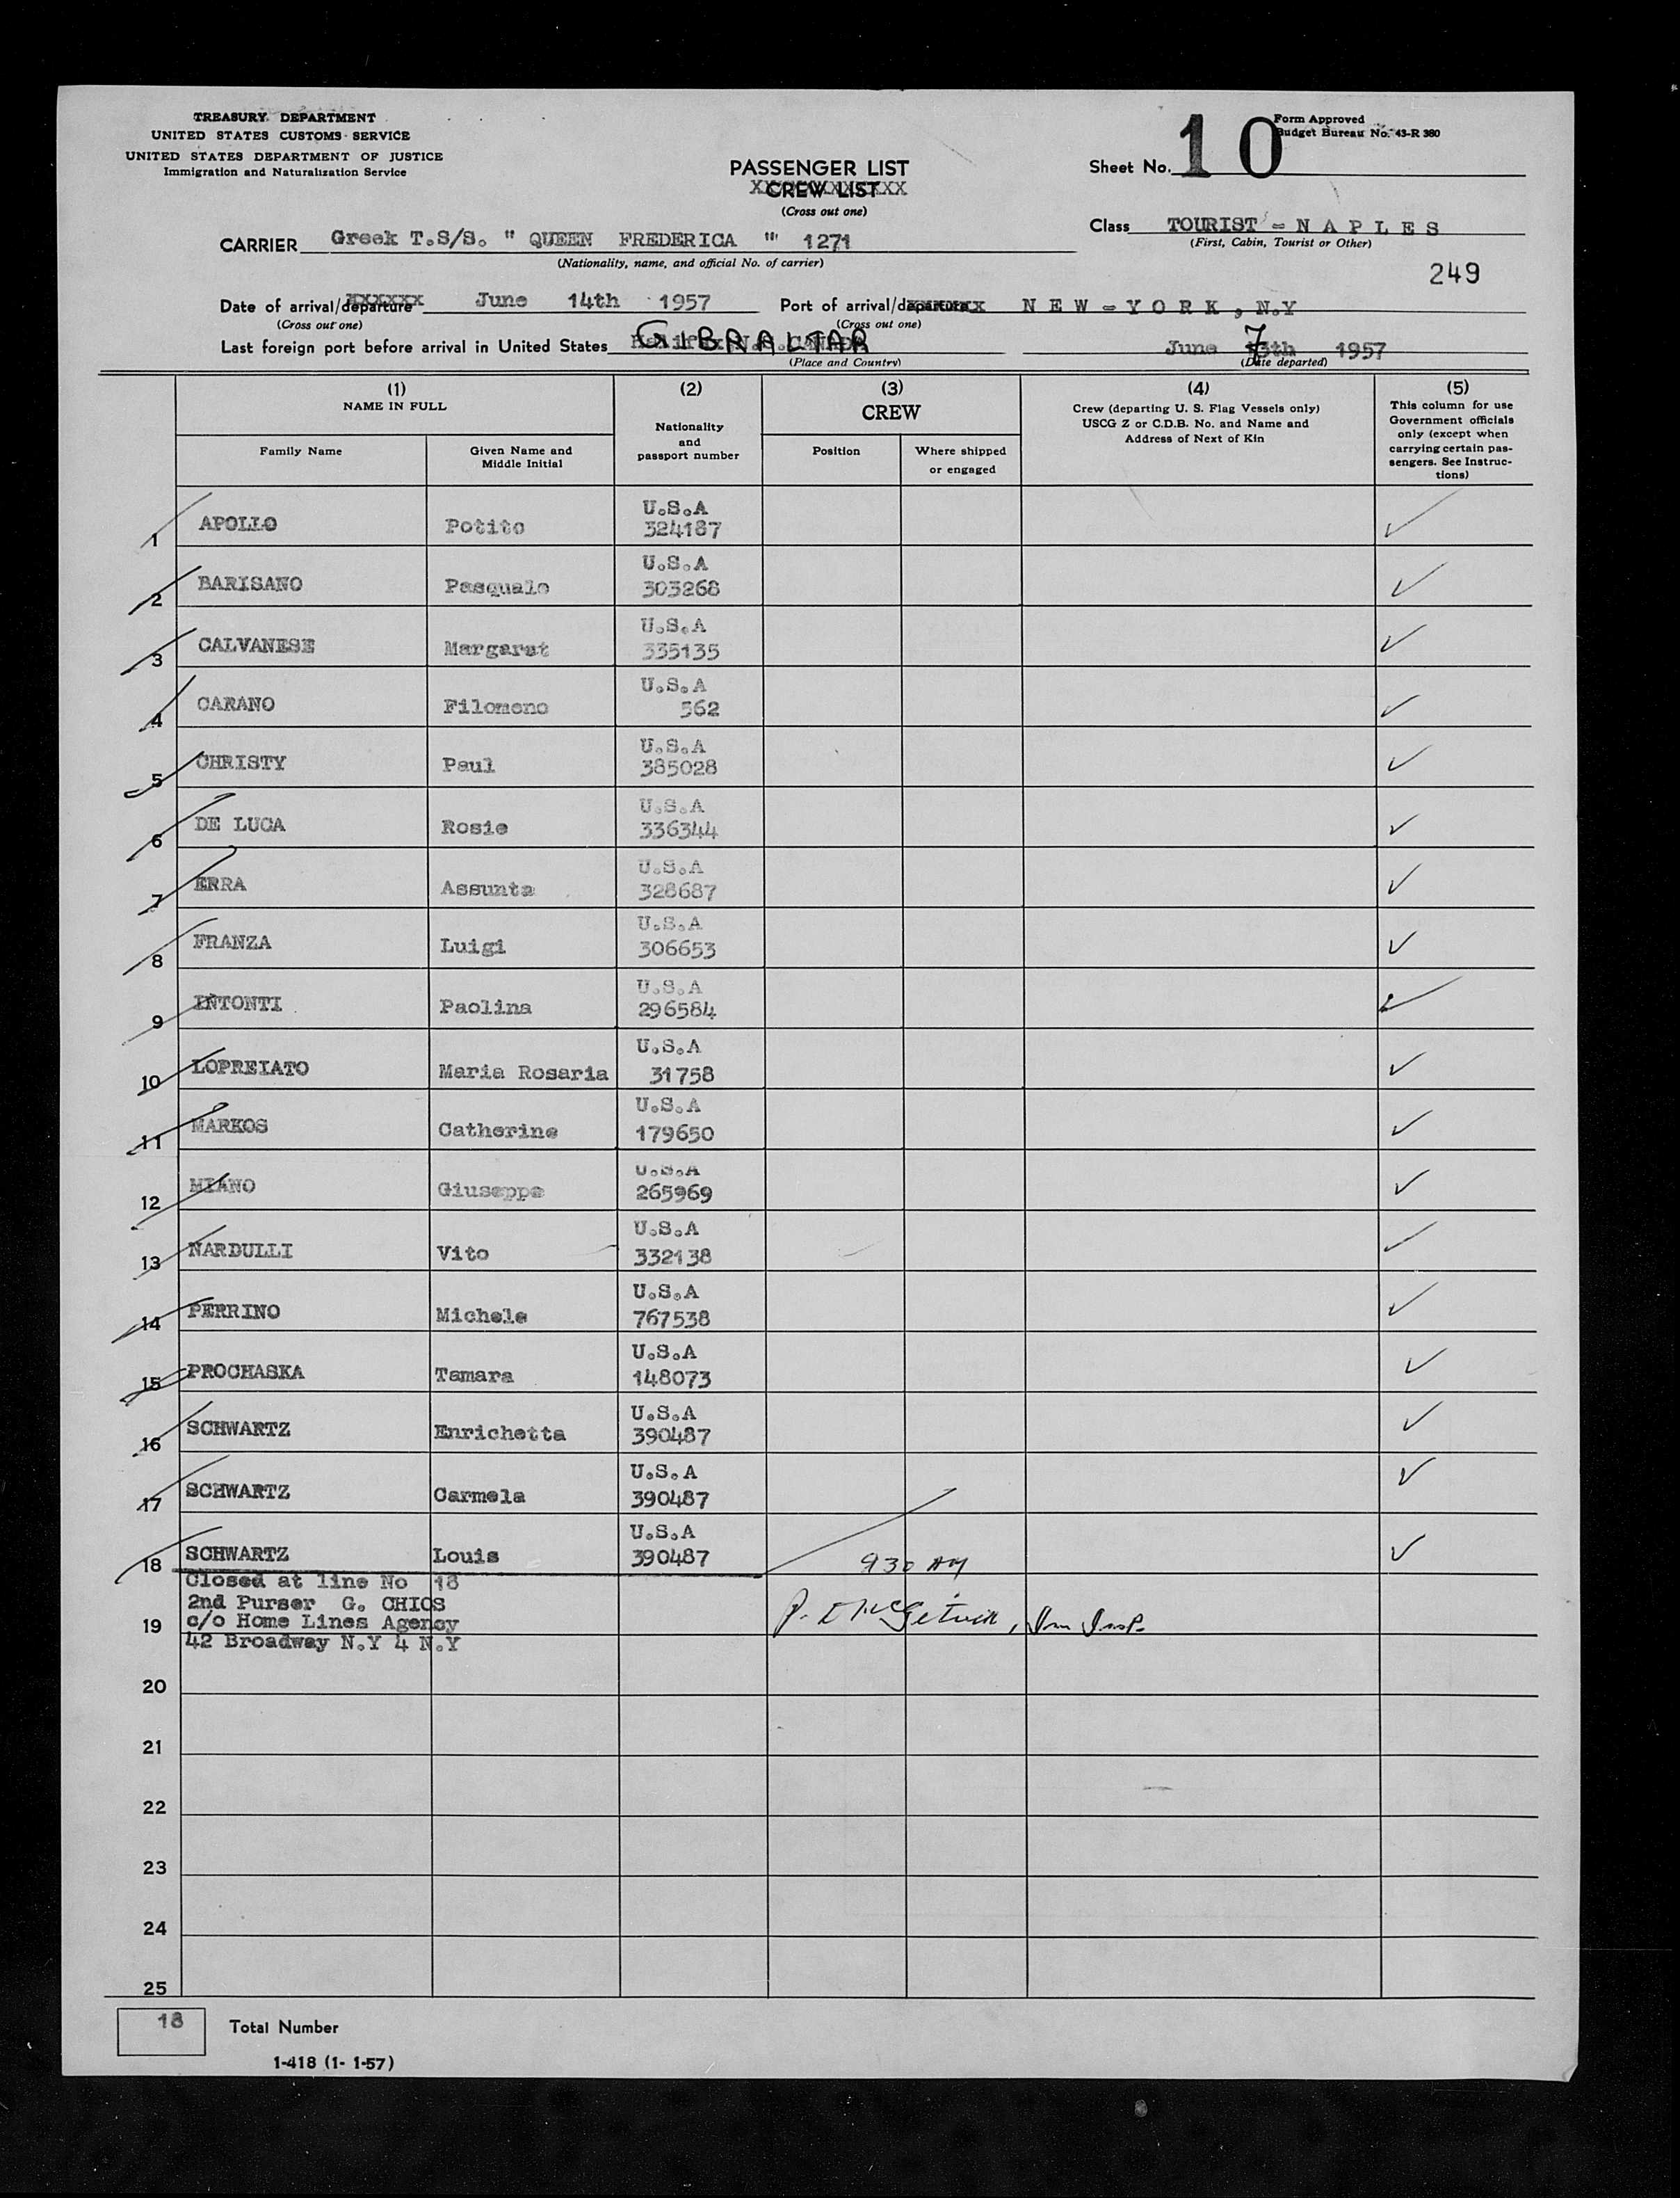 TREASURY DEPARTMENT
UNITED STATES CUSTOMS SERVICE
UNITED STATES DEPARTMENT OF JUSTICE
Immigration and Naturalization Service
Form Approved
Budget Bureau No. 43-R 380
Sheet No. 10
PASSENGER LIST
CREW LIST
(Cross out one)
Class TOURIST - N A P L E S
(First, Cabin, Tourist or Other)
CARRIER Greek T.S/S. " QUEEN FREDERICA " 1271
(Nationality, name, and official No. of carrier)
249
Date of arrival/departure June 14th 1957 Port of arrival/departure N E W - Y O R K , N.Y
(Cross out one) (Cross out one)
Last foreign port before arrival in United States GIBRALTAR June 7 1957
(Place and Country) (Date departed)
(1) (2) (3) (4) (5)
NAME IN FULL
Family Name
Given Name and Middle Initial
Nationality and passport number
CREW
Position
Where shipped or engaged
Crew (departing U. S. Flag Vessels only)
USCG Z or C.D.B. No. and Name and
Address of Next of Kin
This column for use
Government officials
only (except when
carrying certain pas-
sengers. See Instruc-
tions)
1 APOLLO Potito U.S.A 324187
2 BARISANO Pasquale U.S.A 303268
3 CALVANESE Margaret U.S.A 335135
4 CARANO Filomeno U.S.A 562
5 CHRISTY Paul U.S.A 385028
6 DE LUCA Rosie U.S.A 336344
7 ERRA Assunta U.S.A 328687
8 FRANZA Luigi U.S.A 306653
9 INTONTI Paolina U.S.A 296584
10 LOPREIATO Maria Rosaria U.S.A 31758
11 MARKOS Catherine U.S.A 179650
12 MIANO Giuseppe U.S.A 265969
13 NARDULLI Vito U.S.A 332138
14 PERRINO Michele U.S.A 767538
15 PROCHASKA Tamara U.S.A 148073
16 SCHWARTZ Enrichetta U.S.A 390487
17 SCHWARTZ Carmela U.S.A 390487
18 SCHWARTZ Louis U.S.A 390487
930 AM
Closed at line No 18
2nd Purser G. CHIOS
c/o Home Lines Agency
19
42 Broadway N.Y 4 N.Y
20
21
22
23
24
25
18 Total Number
1-418 (1- 1-57)